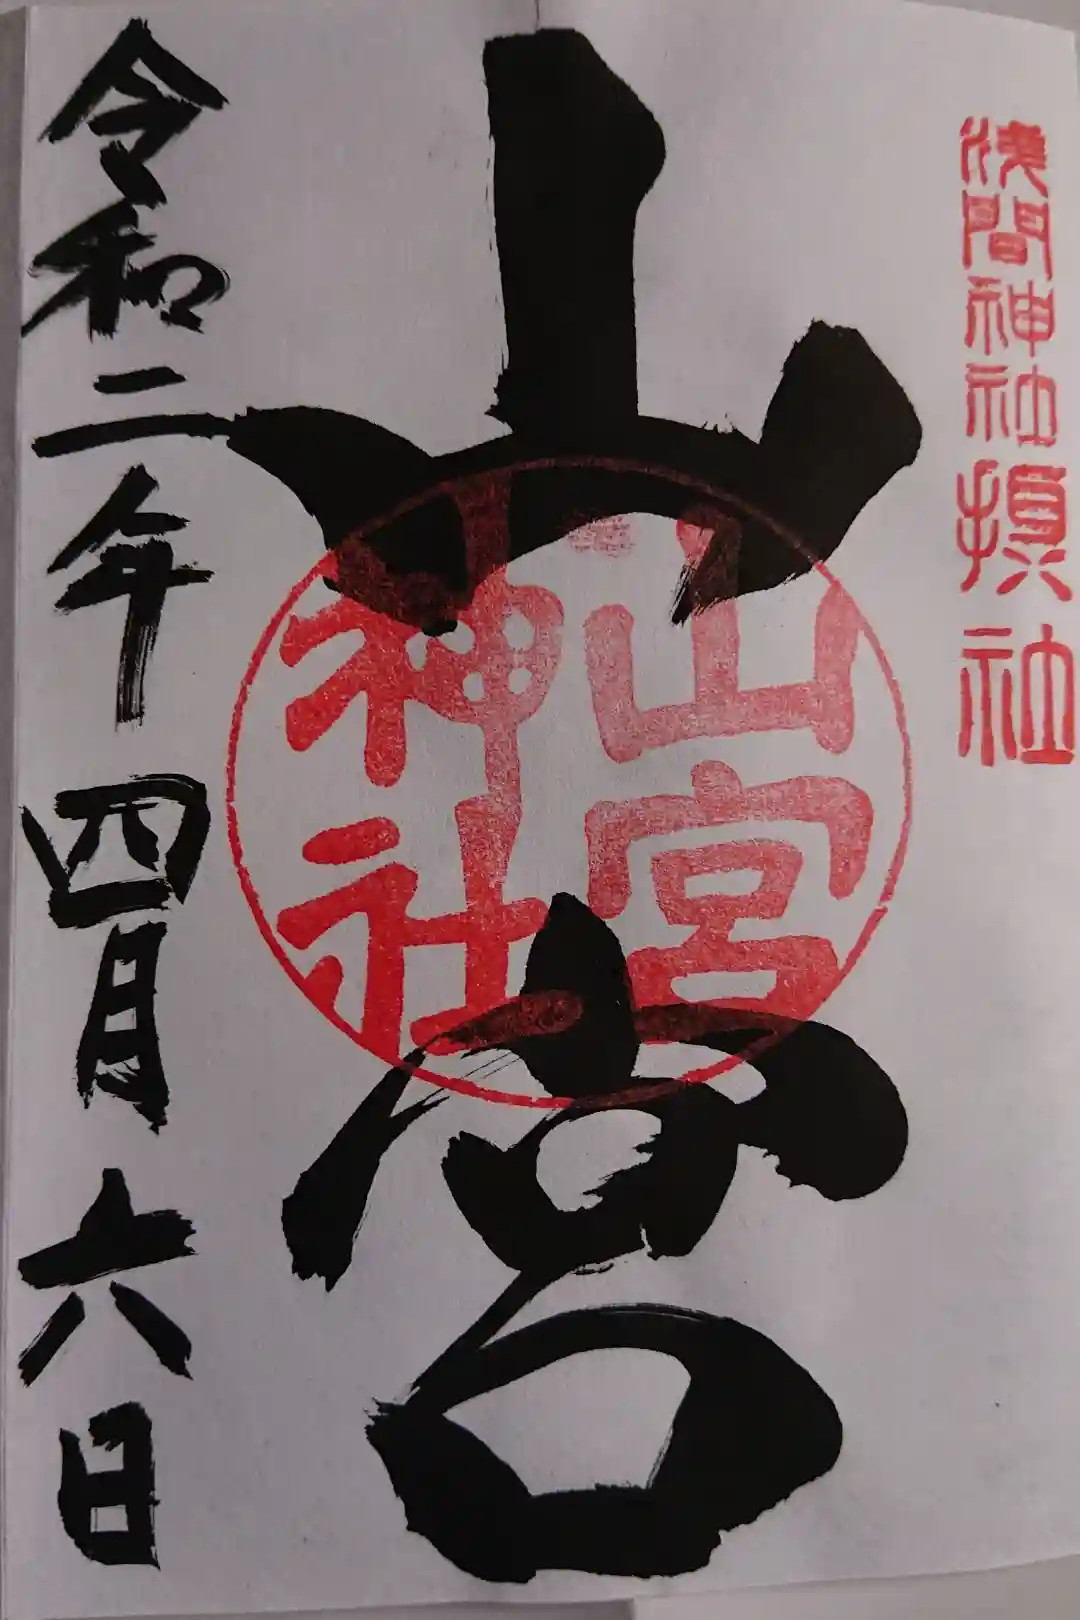 浅間神社摂社
山宮
山宮
神社
令和二年四月六日